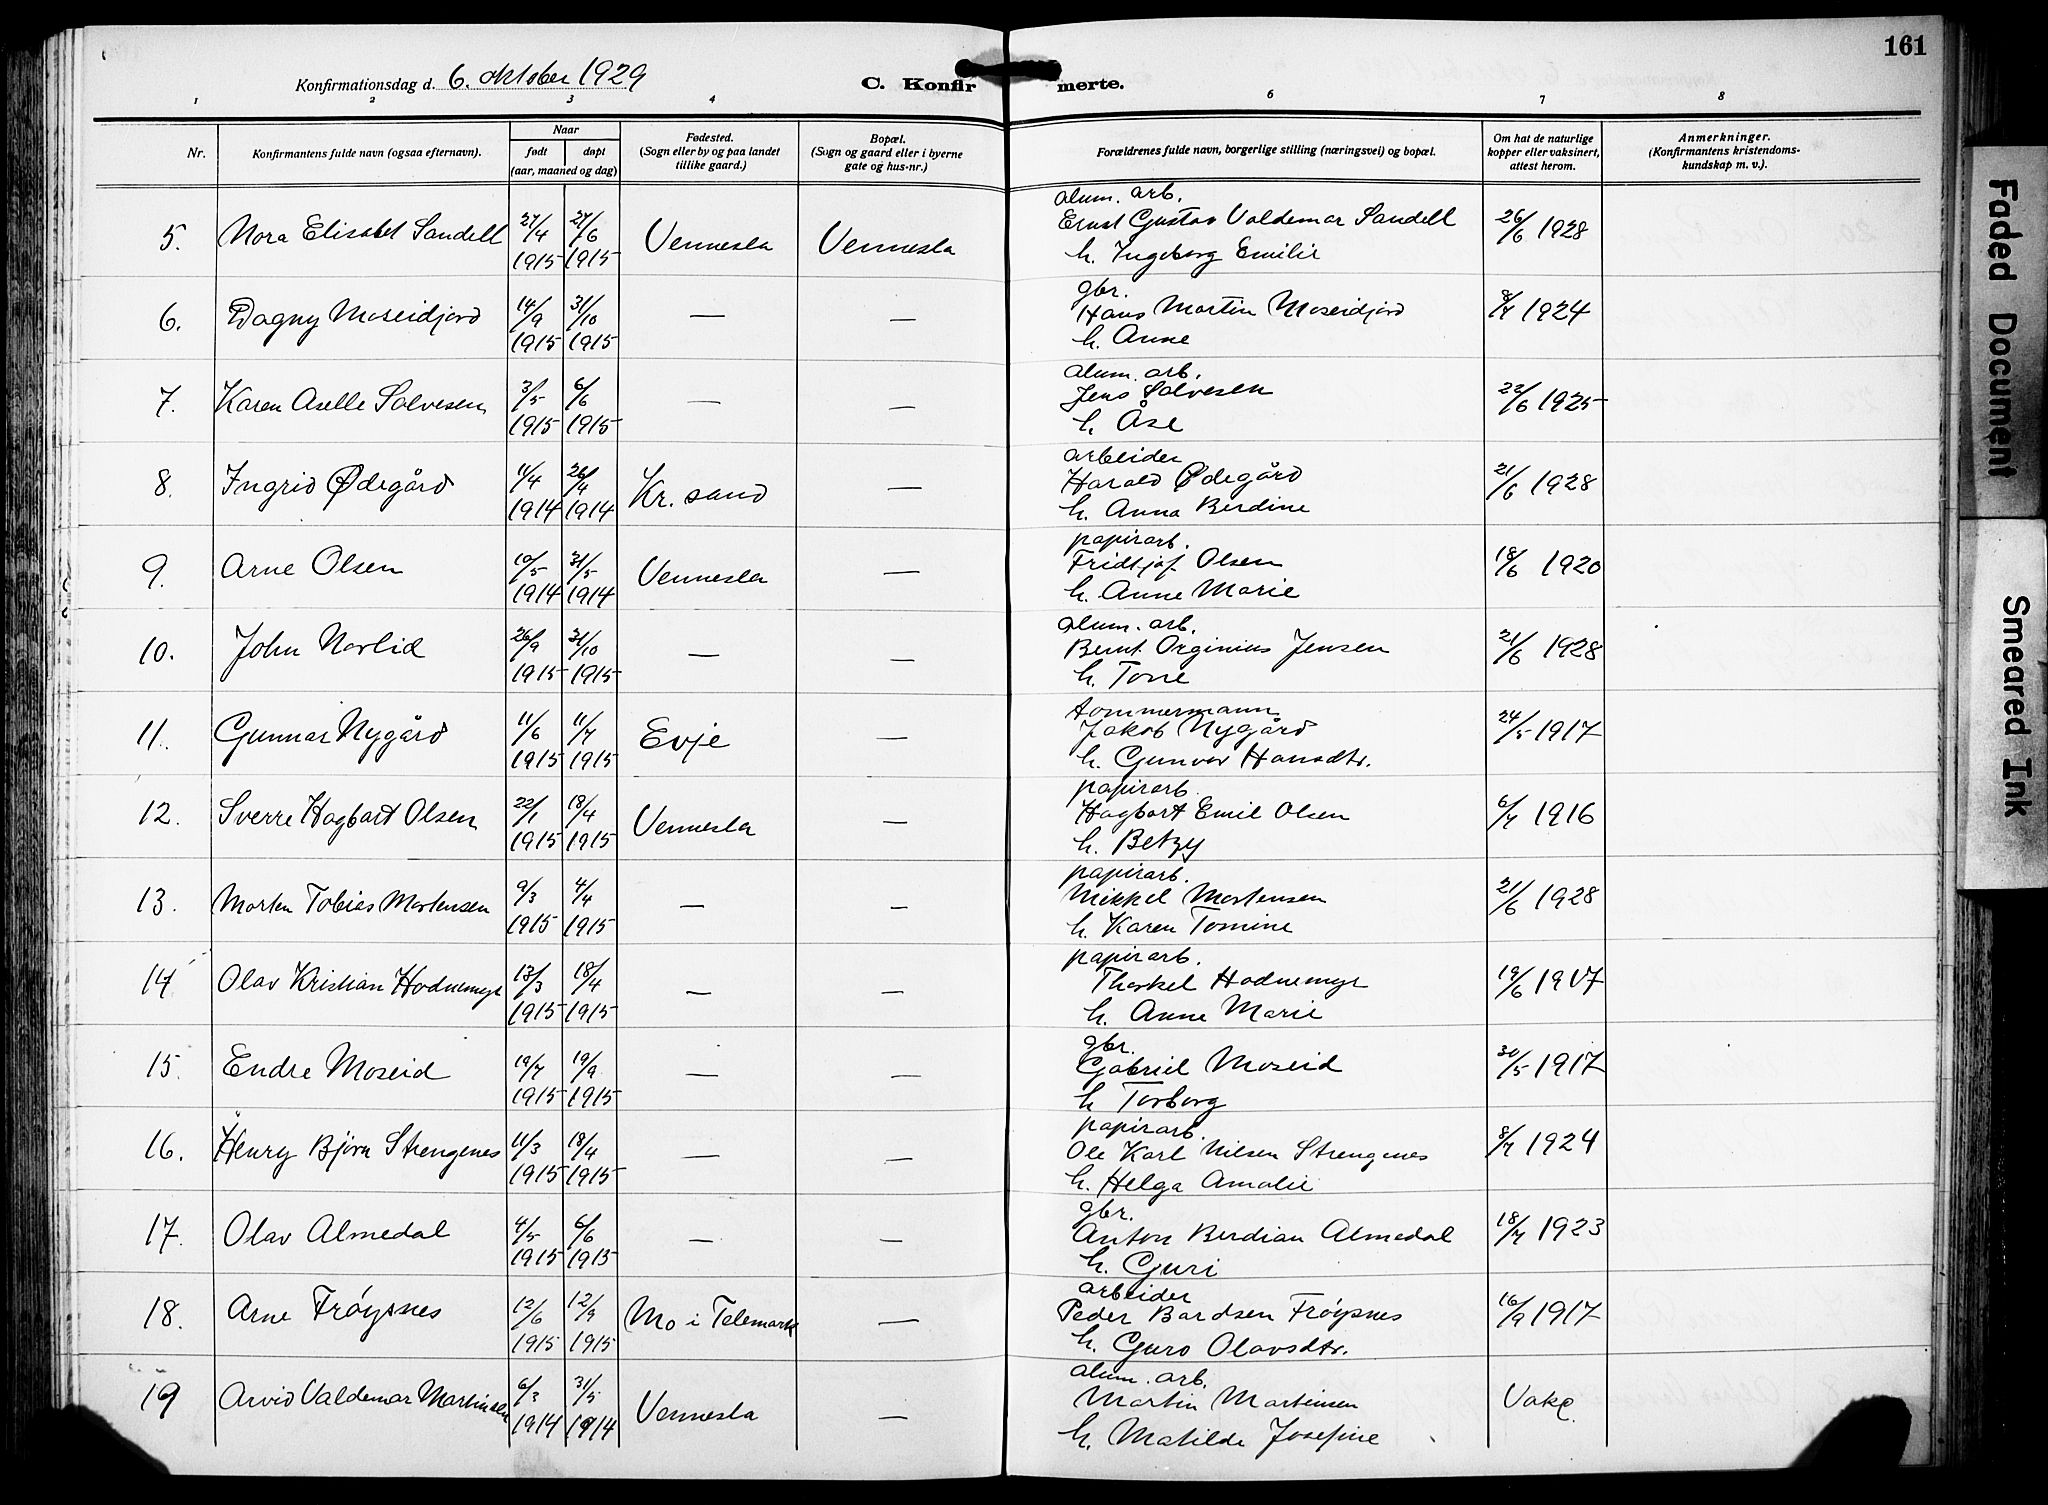 161
Konfirmationsdag d. 6. oktober 1929
C. Konfirmerte.
1 2 3 4 6 7 8
Nr. Konfirmantens fulde navn (ogsaa efternavn). Naar født døpt (aar, maaned og dag) Fødested. (Sogn eller by og paa landet tillike gaard.) Bopæl. (Sogn og gaard eller i byerne gate og hus-nr.) Forældrenes fulde navn, borgerlige stilling (næringsvei) og bopæl. Om hat de naturlige kopper eller vaksinert, attest herom. Anmerkninger. (Konfirmantens kristendoms-kundskap m. v.).
alum. arb.
5. Nora Elisabet Sandell 27/4 1915 27/6 1915 Vennesla Vennesla Ernst Gustav Valdemar Sandell 26/6 1928
h. Ingeborg Emilie
gbr.
6. Dagny Moseidjord 14/9 1915 31/10 1915 — — Hans Martin Moseidjord 8/7 1924
h. Anne
alum. arb.
7. Karen Aselle Salvesen 3/5 1915 6/6 1915 — — Jens Salvesen 22/6 1925
h. Åse
arbeider
8. Ingrid Ødegård 11/4 1914 26/4 1914 Kr. sand — Harald Ødegård 21/6 1928
h. Anna Berdine
papirarb.
9. Arne Olsen 10/5 1914 31/5 1914 Vennesla — Fridtjof Olsen 18/6 1920
h. Anne Marie
alum. arb.
10. John Norlid 26/9 1915 31/10 1915 — — Bernt Orginius Jensen 21/6 1928
h. Tone
tommermann
11. Gunnar Nygård 11/6 1915 11/7 1915 Evje — Jakob Nygård 24/5 1917
h. Gunvor Hansdtr.
papirarb.
12. Sverre Hagbart Olsen 22/1 1915 18/4 1915 Vennesla — Hagbart Emil Olsen 6/7 1916
h. Betzy
papirarb.
13. Morten Tobias Mortensen 9/3 1915 4/4 1915 — — Mikkel Mortensen 21/6 1928
h. Karen Tomine
papirarb.
14 Olav Kristian Hodnemyr 13/3 1915 18/4 1915 — — Thorkel Hodnemyr 19/6 1917
h. Anne Marie
gbr.
15. Endre Moseid 19/7 1915 19/9 1915 — — Gabriel Moseid 30/5 1917
h. Torborg
papirarb.
16. Henry Bjørn Strengenes 11/3 1915 18/4 1915 — — Ole Karl Nilsen Strengenes 8/7 1924
h. Helga Amalie
gbr.
17. Olav Almedal 4/5 1915 6/6 1915 — — Anton Berdian Almedal 18/7 1923
h. Guri
arbeider
18. Arne Frøysnes 12/6 1915 12/9 1915 Mo i Telemark — Peder Bårdsen Frøysnes 16/9 1917
h. Guro Olavsdtr.
alum. arb.
19 Arvid Valdemar Martinsen 6/3 1914 31/5 1914 Vennesla — Martin Martinsen Vake.
h. Matilde Josefine
Faded Document
Smeared Ink